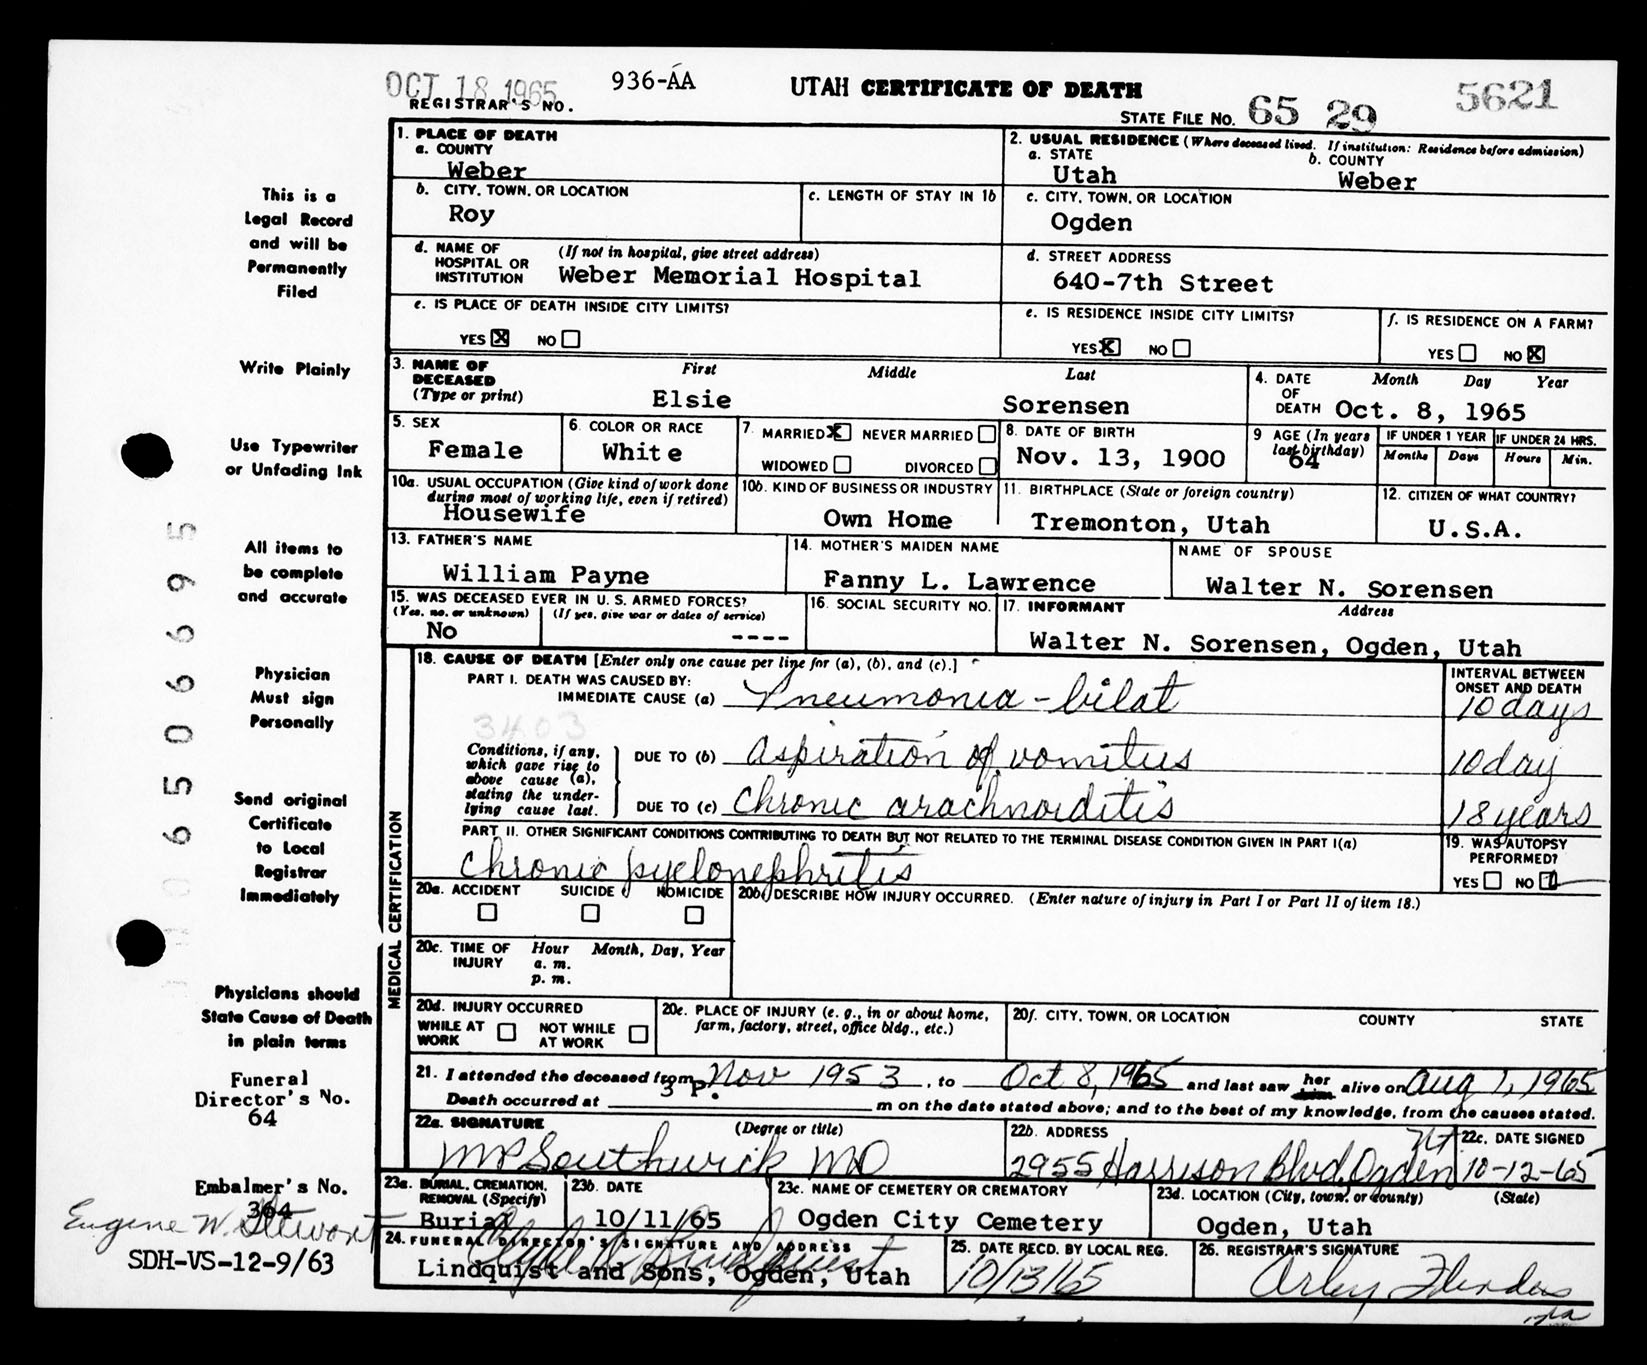 OCT 18 1965
936-AA
UTAH CERTIFICATE OF DEATH
5621
REGISTRAR'S NO.
STATE FILE NO. 65 29
This is a
Legal Record
and will be
Permanently
Filed
Write Plainly
Use Typewriter
or Unfading Ink
All items to
be complete
and accurate
Physician
Must sign
Personally
Send original
Certificate
to Local
Registrar
Immediately
Physicians should
State Cause of Death
in plain terms
Funeral
Director's No.
64
Embalmer's No.
364
Eugene W. Stewart
SDH-VS-12-9/63
1. PLACE OF DEATH
a. COUNTY
Weber
2. USUAL RESIDENCE (Where deceased lived. If institution: Residence before admission)
a. STATE
Utah
b. COUNTY
Weber
b. CITY, TOWN, OR LOCATION
Roy
c. LENGTH OF STAY IN 1b
c. CITY, TOWN, OR LOCATION
Ogden
d. NAME OF HOSPITAL OR INSTITUTION
(If not in hospital, give street address)
Weber Memorial Hospital
d. STREET ADDRESS
640-7th Street
e. IS PLACE OF DEATH INSIDE CITY LIMITS?
YES X NO
e. IS RESIDENCE INSIDE CITY LIMITS?
YES X NO
f. IS RESIDENCE ON A FARM?
YES NO X
3. NAME OF DECEASED
(Type or print)
First Middle Last
Elsie Sorensen
4. DATE OF DEATH
Month Day Year
Oct. 8, 1965
5. SEX
Female
6. COLOR OR RACE
White
7. MARRIED X NEVER MARRIED
WIDOWED DIVORCED
8. DATE OF BIRTH
Nov. 13, 1900
9 AGE (In years last birthday)
64
IF UNDER 1 YEAR
Months Days
IF UNDER 24 HRS.
Hours Min.
10a. USUAL OCCUPATION (Give kind of work done
during most of working life, even if retired)
Housewife
10b. KIND OF BUSINESS OR INDUSTRY
Own Home
11. BIRTHPLACE (State or foreign country)
Tremonton, Utah
12. CITIZEN OF WHAT COUNTRY?
U.S.A.
13. FATHER'S NAME
William Payne
14. MOTHER'S MAIDEN NAME
Fanny L. Lawrence
NAME OF SPOUSE
Walter N. Sorensen
15. WAS DECEASED EVER IN U.S. ARMED FORCES?
(Yes, no, or unknown) (If yes, give war or dates of service)
No ----
16. SOCIAL SECURITY NO.
17. INFORMANT Address
Walter N. Sorensen, Ogden, Utah
MEDICAL CERTIFICATION
18. CAUSE OF DEATH [Enter only one cause per line for (a), (b), and (c).]
PART I. DEATH WAS CAUSED BY:
IMMEDIATE CAUSE (a) Pneumonia - bilat
INTERVAL BETWEEN
ONSET AND DEATH
10 days
3403
Conditions, if any,
which gave rise to
above cause (a),
stating the under-
lying cause last.
DUE TO (b) Aspiration of vomitus
10 day
DUE TO (c) Chronic arachnoiditis
18 years
PART II. OTHER SIGNIFICANT CONDITIONS CONTRIBUTING TO DEATH BUT NOT RELATED TO THE TERMINAL DISEASE CONDITION GIVEN IN PART I(a)
Chronic pyelonephritis
19. WAS AUTOPSY
PERFORMED?
YES NO
20a. ACCIDENT SUICIDE HOMICIDE
20b. DESCRIBE HOW INJURY OCCURRED. (Enter nature of injury in Part I or Part II of item 18.)
20c. TIME OF INJURY
Hour Month, Day, Year
a. m.
p. m.
20d. INJURY OCCURRED
WHILE AT WORK NOT WHILE AT WORK
20e. PLACE OF INJURY (e. g., in or about home,
farm, factory, street, office bldg., etc.)
20f. CITY, TOWN, OR LOCATION COUNTY STATE
21. I attended the deceased from Nov 1953, to Oct 8, 1965 and last saw her him alive on Aug 1, 1965
Death occurred at 3 P. m on the date stated above; and to the best of my knowledge, from the causes stated.
22a. SIGNATURE (Degree or title)
MP Southwick MD
22b. ADDRESS
2955 Harrison Blvd. Ogden Ut
22c. DATE SIGNED
10-12-65
23a. BURIAL, CREMATION,
REMOVAL (Specify)
Burial
23b. DATE
10/11/65
23c. NAME OF CEMETERY OR CREMATORY
Ogden City Cemetery
23d. LOCATION (City, town, or county) (State)
Ogden, Utah
24. FUNERAL DIRECTOR'S SIGNATURE AND ADDRESS
Lindquist and Sons, Ogden, Utah
25. DATE RECD. BY LOCAL REG.
10/13/65
26. REGISTRAR'S SIGNATURE
Arley Flinders